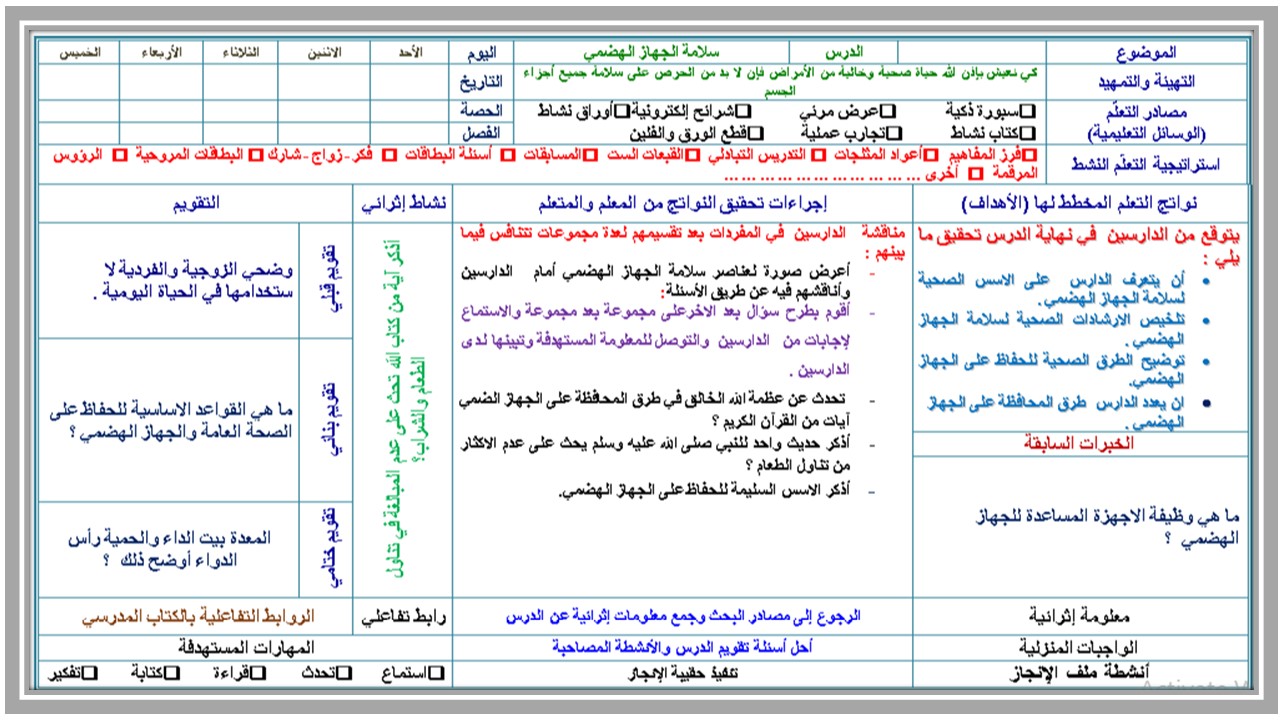 الموضوع الدرس سلامة الجهاز الهضمي اليوم الأحد الاثنين الثلاثاء الأربعاء الخميس
التهيئة والتمهيد كي نعيش بإذن الله حياة صحية وخالية من الأمراض فإن لا بد من الحرص على سلامة جميع أجزاء
الجسم
التاريخ
مصادر التعلّم
(الوسائل التعليمية)
□سبورة ذكية □عرض مرئي □شرائح إلكترونية □أوراق نشاط
□كتاب نشاط □تجارب عملية □قطع الورق والفلين
الحصة
الفصل
استراتيجية التعلّم النشط
□فرز المفاهيم □أعواد المثلجات □ التدريس التبادلي □القبعات الست □المسابقات □ أسئلة البطاقات □ فكر-زواج-شارك □ البطاقات المروحية □ الرؤوس
المرقمة □ أخرى ... ... ... ... ... ... ... ... ... ... ...
نواتج التعلم المخطط لها (الأهداف)
يتوقع من الدارسين في نهاية الدرس تحقيق ما
يلي :
• أن يتعرف الدارس على الاسس الصحية
لسلامة الجهاز الهضمي.
• تلخيص الارشادات الصحية لسلامة الجهاز
الهضمي.
• توضيح الطرق الصحية للحفاظ على الجهاز
الهضمي.
• ان يعدد الدارس طرق المحافظة على الجهاز
الهضمي.
الخبرات السابقة
ما هي وظيفة الاجهزة المساعدة للجهاز
الهضمي ؟
إجراءات تحقيق النواتج من المعلم والمتعلم
مناقشة الدارسين في المفردات بعد تقسيمهم لعدة مجموعات تتنافس فيما
بينهم :
- أعرض صورة لعناصر سلامة الجهاز الهضمي أمام الدارسين
وأناقشهم فيه عن طريق الأسئلة:
- أقوم بطرح سؤال بعد الاخرعلى مجموعة بعد مجموعة والاستماع
لإجابات من الدارسين والتوصل للمعلومة المستهدفة وتبينها لدى
الدارسين .
- تحدث عن عظمة الله الخالق في طرق المحافظة على الجهاز الضمي
آيات من القرآن الكريم ؟
- أذكر حديث واحد للنبي صلى الله عليه وسلم يحث على عدم الاكثار
من تناول الطعام ؟
- أذكر الاسس السليمة للحفاظ على الجهاز الهضمي.
نشاط إثرائي
أذكر آية من كتاب الله تحث على عدم المبالغة في تناول
الطعام والشراب؟
التقويم
تقويم قبلي
وضحي الزوجية والفردية لا
ستخدامها في الحياة اليومية .
تقويم بنائي
ما هي القواعد الاساسية للحفاظ على
الصحة العامة والجهاز الهضمي ؟
تقويم ختامي
المعدة بيت الداء والحمية رأس
الدواء أوضح ذلك ؟
معلومة إثرائية الرجوع إلى مصادر البحث وجمع معلومات إثرائية عن الدرس رابط تفاعلي الروابط التفاعلية بالكتاب المدرسي
الواجبات المنزلية أحل أسئلة تقويم الدرس والأنشطة المصاحبة المهارات المستهدفة
أنشطة ملف الإنجاز تنفيذ حقيبة الإنجاز □استماع □تحدث □قراءة □كتابة □تفكير